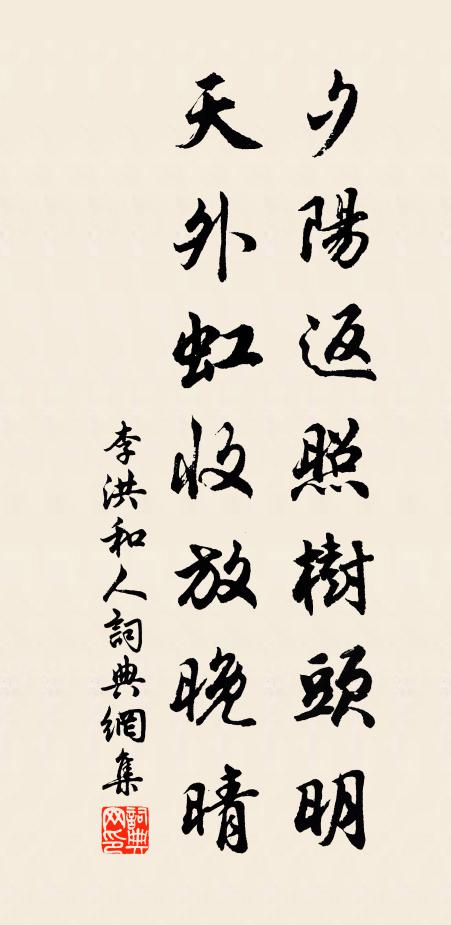 夕陽返照樹頭明
天外虹收放晚晴
李洪和人詞典網集
詞典网印